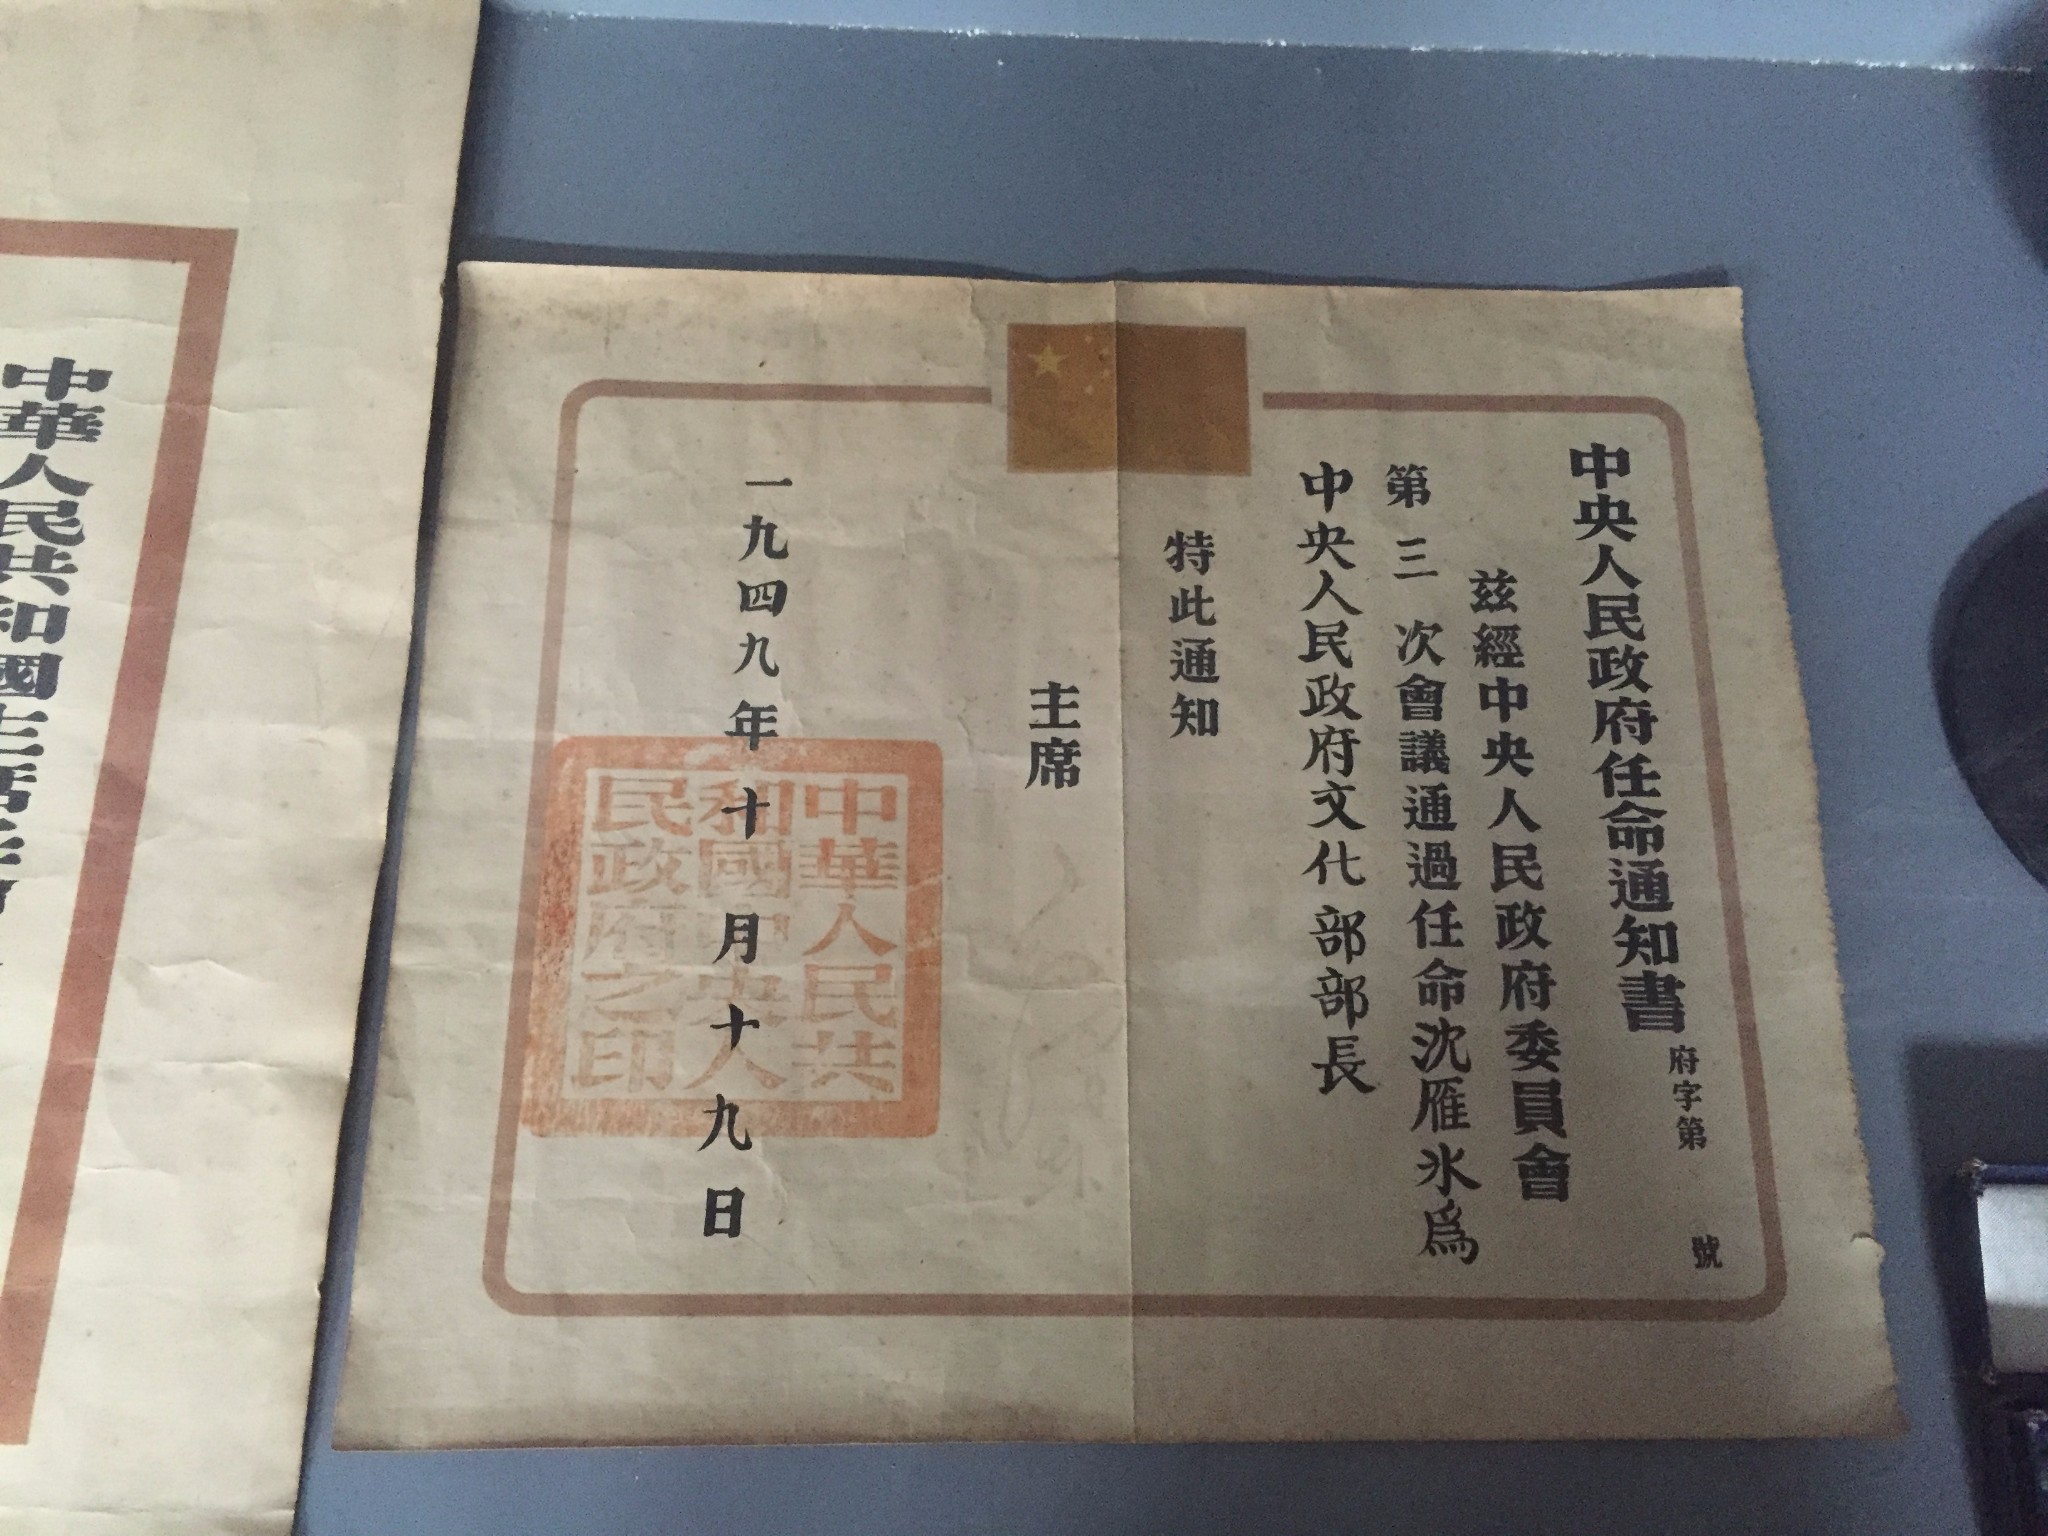 中央人民政府任命通知書
府字第 號
茲經中央人民政府委員會
第三次會議通過任命沈雁冰爲
中央人民政府文化部部長
特此通知
主席
一九四九年十月十九日
中華人民共
和國中央人
民政府之印
中華人民共和國